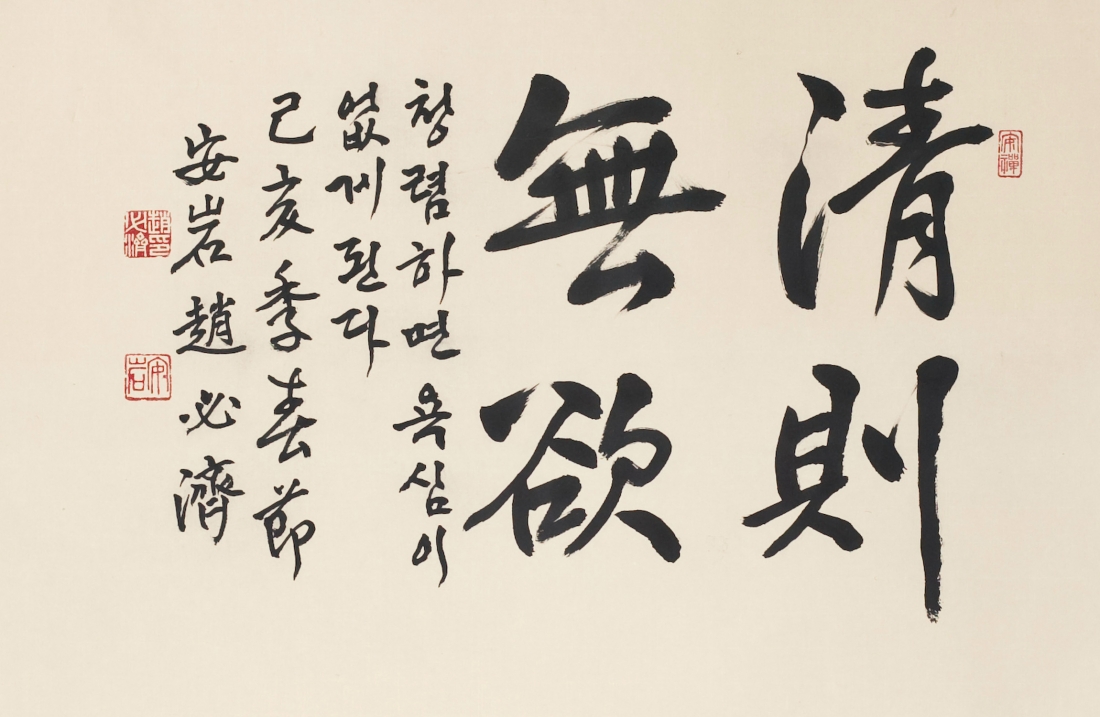 清則
無欲
청렴하면 욕심이
없게 된다
己亥季春節
安岩 趙必濟
趙必濟印
安岩